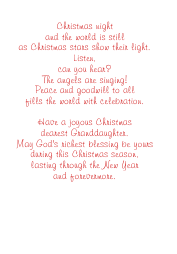 Christmas night
and the world is still
as Christmas stars show their light.
Listen,
can you hear?
The angels are singing!
Peace and goodwill to all
fills the world with celebration.

Have a joyous Christmas
dearest Granddaughter.
May God's richest blessing be yours
during this Christmas season,
lasting through the New Year
and forevermore.